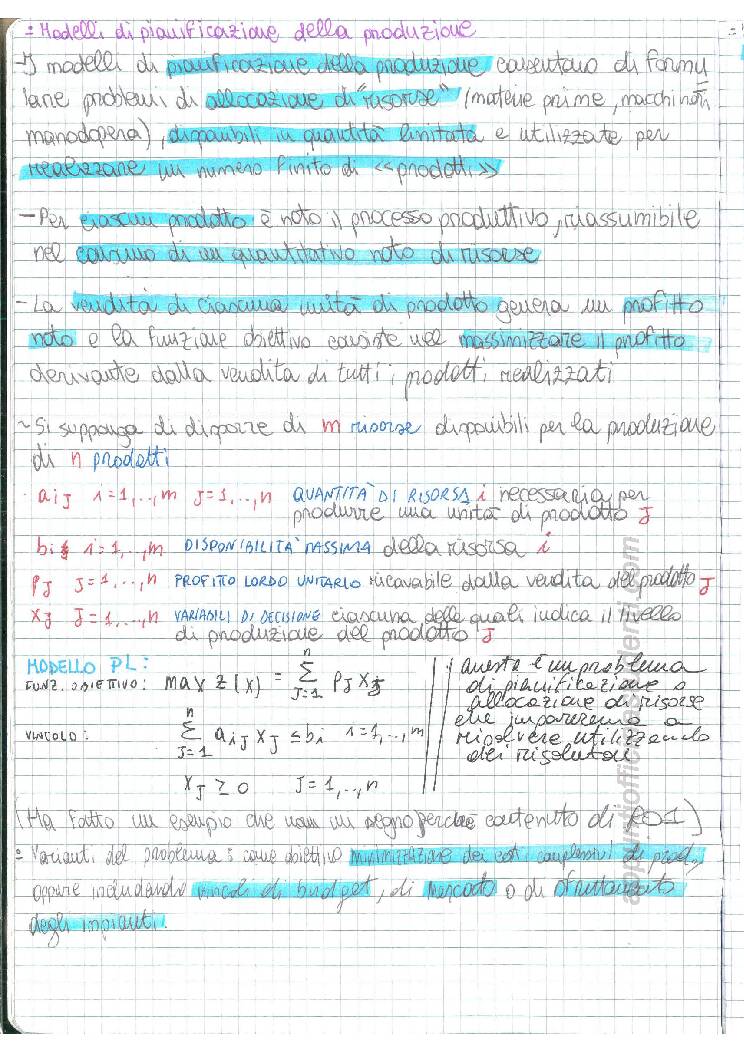 = Modelli di pianificazione della produzione
- I modelli di pianificazione della produzione consentono di formu
lare problemi di allocazione di "risorse" (materie prime, macchinari,
manodopera), disponibili in quantità limitata e utilizzate per
realizzare un numero finito di «prodotti»
- Per ciascun prodotto è noto il processo produttivo, riassumibile
nel consumo di un quantitativo noto di risorse
- La vendita di ciascuna unità di prodotto genera un profitto
noto e la funzione obiettivo consiste nel massimizzare il profitto
derivante dalla vendita di tutti i prodotti realizzati
~ Si supponga di disporre di m risorse disponibili per la produzione
di n prodotti
· aij i=1,..,m J=1,..,n QUANTITÀ DI RISORSA i necessaria per
produrre una unità di prodotto J
bi i=1,..,m DISPONIBILITÀ MASSIMA della risorsa i
pJ J=1,..,n PROFITTO LORDO UNITARIO ricavabile dalla vendita del prodotto J
xJ J=1,..,n VARIABILI DI DECISIONE ciascuna delle quali indica il livello
di produzione del prodotto J
MODELLO PL:
FUNZ. OBIETTIVO: max z(x) = n Σ J=1 pJ xJ
VINCOLO: n Σ J=1 aiJ xJ ≤ bi i=1,..,m
xJ ≥ 0 J=1,..,n
questo è un problema
di pianificazione o
allocazione di risorse
che impareremo a
risolvere utilizzando
dei risolutori
(Ha fatto un esempio che non segno perché contenuto di RO1)
= Varianti del problema: come obiettivo minimizzazione dei costi complessivi di prod.,
oppure includendo vincoli di budget, di mercato o di sfruttamento
degli impianti.
appuntiofficinastudenti.com